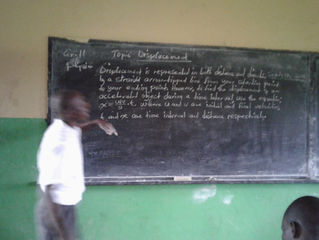 Topic Displacement
Displacement is represented in both distance and direction
by a straight arrow-tipped line from your starting point
to your ending point. However, to find the displacement of an
accelerated object during a time interval use the equation
x = u+v/2 · t, where u and v are initial and final velocities,
t and x are time interval and distance respectively